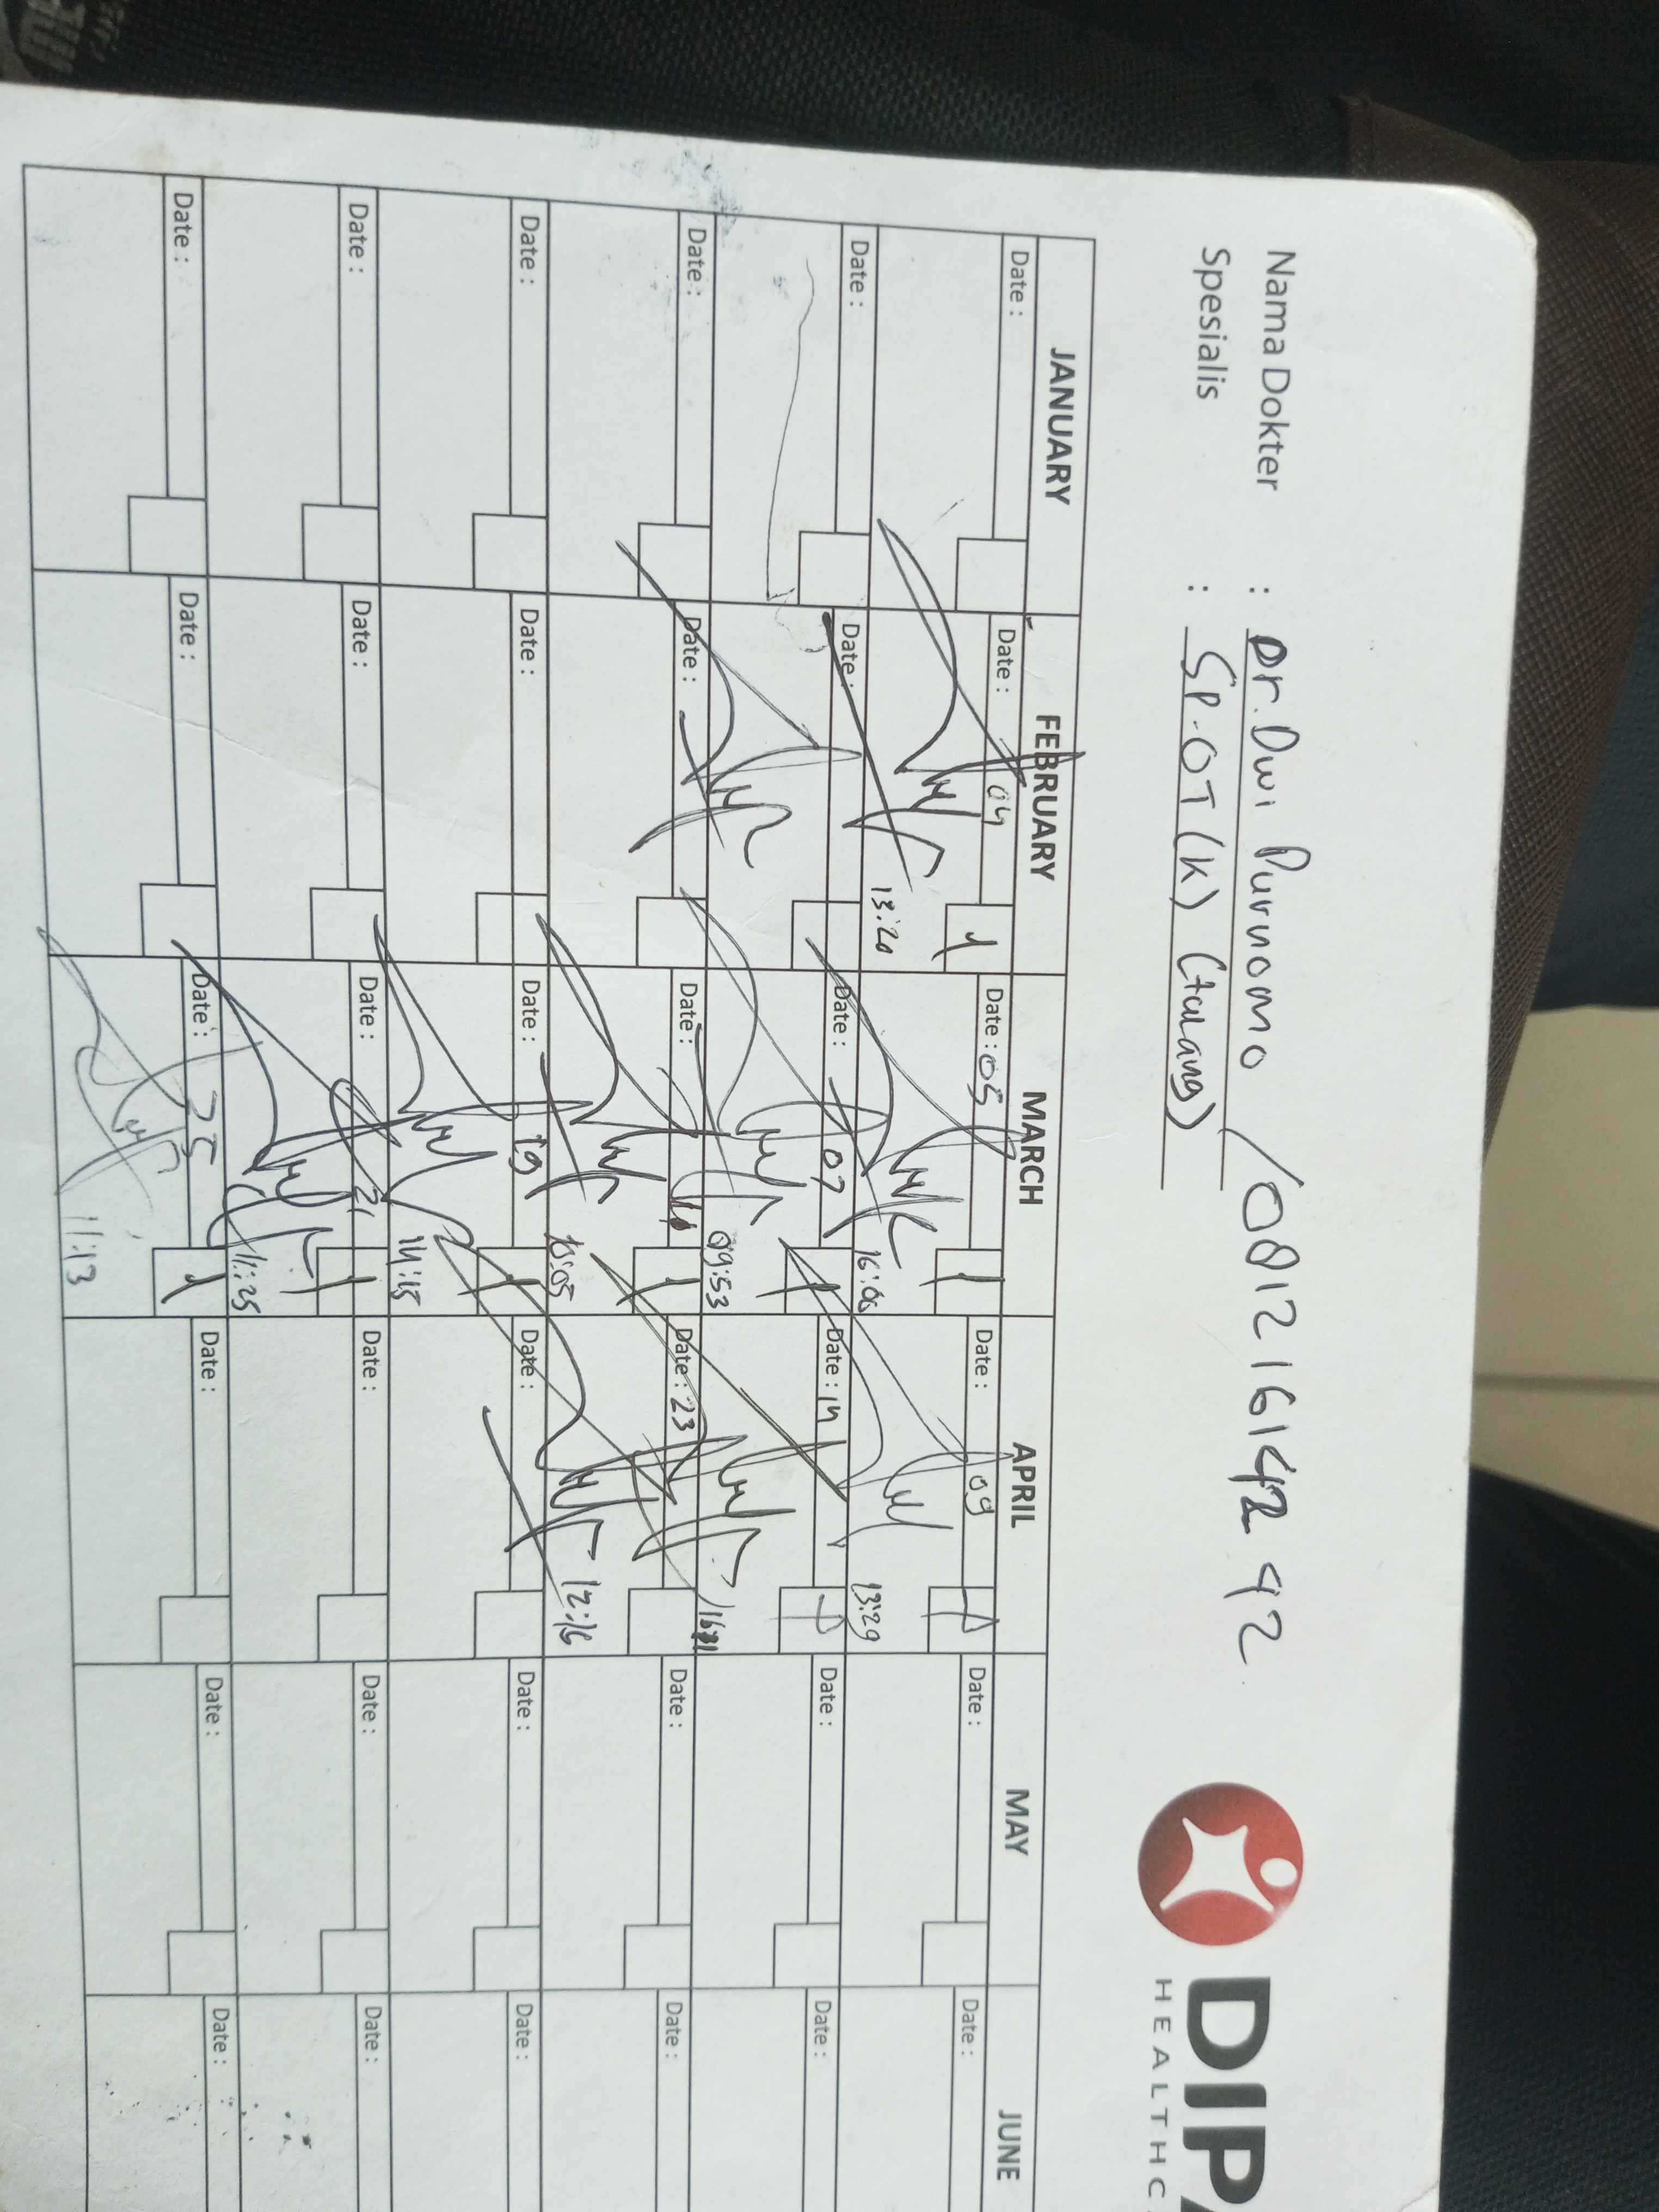 Nama Dokter : Dr. Dwi Purnomo / 081216142 92
Spesialis : SP.OT (K) (tulang)
DIPA
HEALTHC
JANUARY FEBRUARY MARCH APRIL MAY JUNE
Date : Date : 04 1 Date : 05 1 Date : 09 Date : Date :
13:20 16:06 13:29
Date : Date : Date : 07 1 Date : 14 Date : Date :
09:53
Date : Date : Date : 1 Date : 23 Date : Date :
12:16
Date : Date : Date : 19 1 Date : Date : Date :
14:15
Date : Date : Date : 21 1 Date : Date : Date :
11:25
Date : Date : Date : 25 1 Date : Date : Date :
11:13